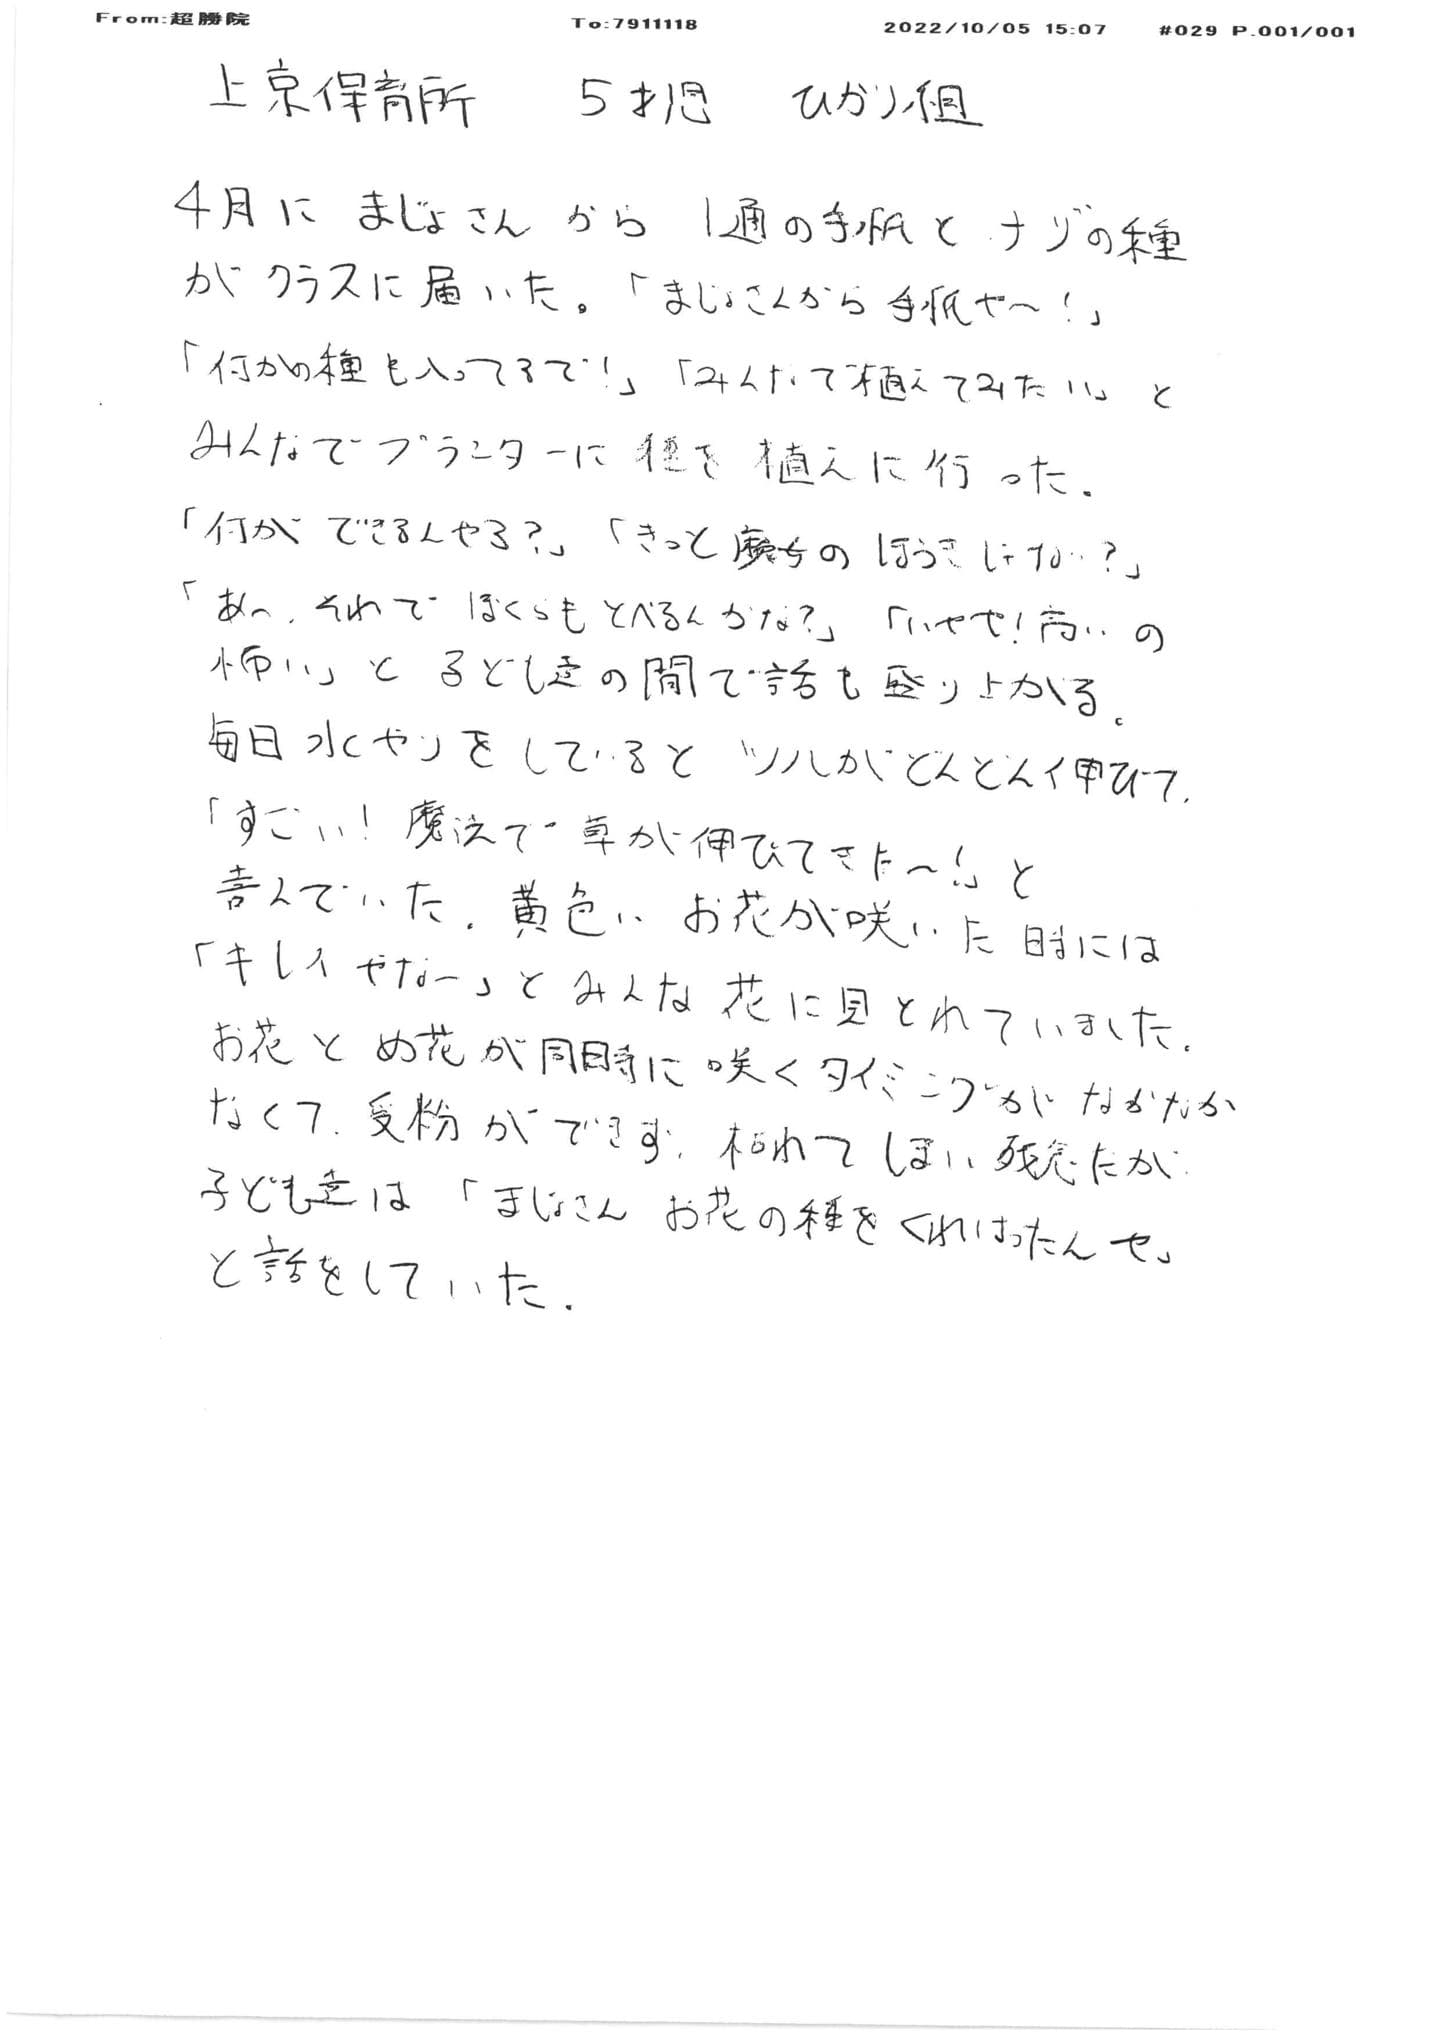 From:超勝院 To:7911118 2022/10/05 15:07 #029 P.001/001
上京保育所 5才児 ひかり組
4月に まじょさん から 1通の手紙と ナゾの種
が クラスに 届いた。「まじょさんから 手紙や〜!」
「何かの種も入ってるで!」「みんなで植えてみたい」と
みんなで プランターに 種を 植えに 行った。
「何が できるんやろ?」「きっと 魔女の ほうきじゃない?」
「あ〜、それで ぼくらも とべるんかな?」「いやや!高いの
怖い」と 子ども達の間で話も盛り上がる。
毎日 水やりを していると ツルが どんどん伸びて、
「すごい! 魔法で 草が 伸びてきた〜!」と
喜んでいた。黄色い お花が咲いた 時には
「キレイ やなー」と みんな 花に 見とれていました。
お花と め花が 同時に 咲くタイミングが なかなか
なくて、受粉が できず、枯れて しまい 残念だが
子ども達は 「まじょさん お花の種を くれはったんや」
と 話をしていた。